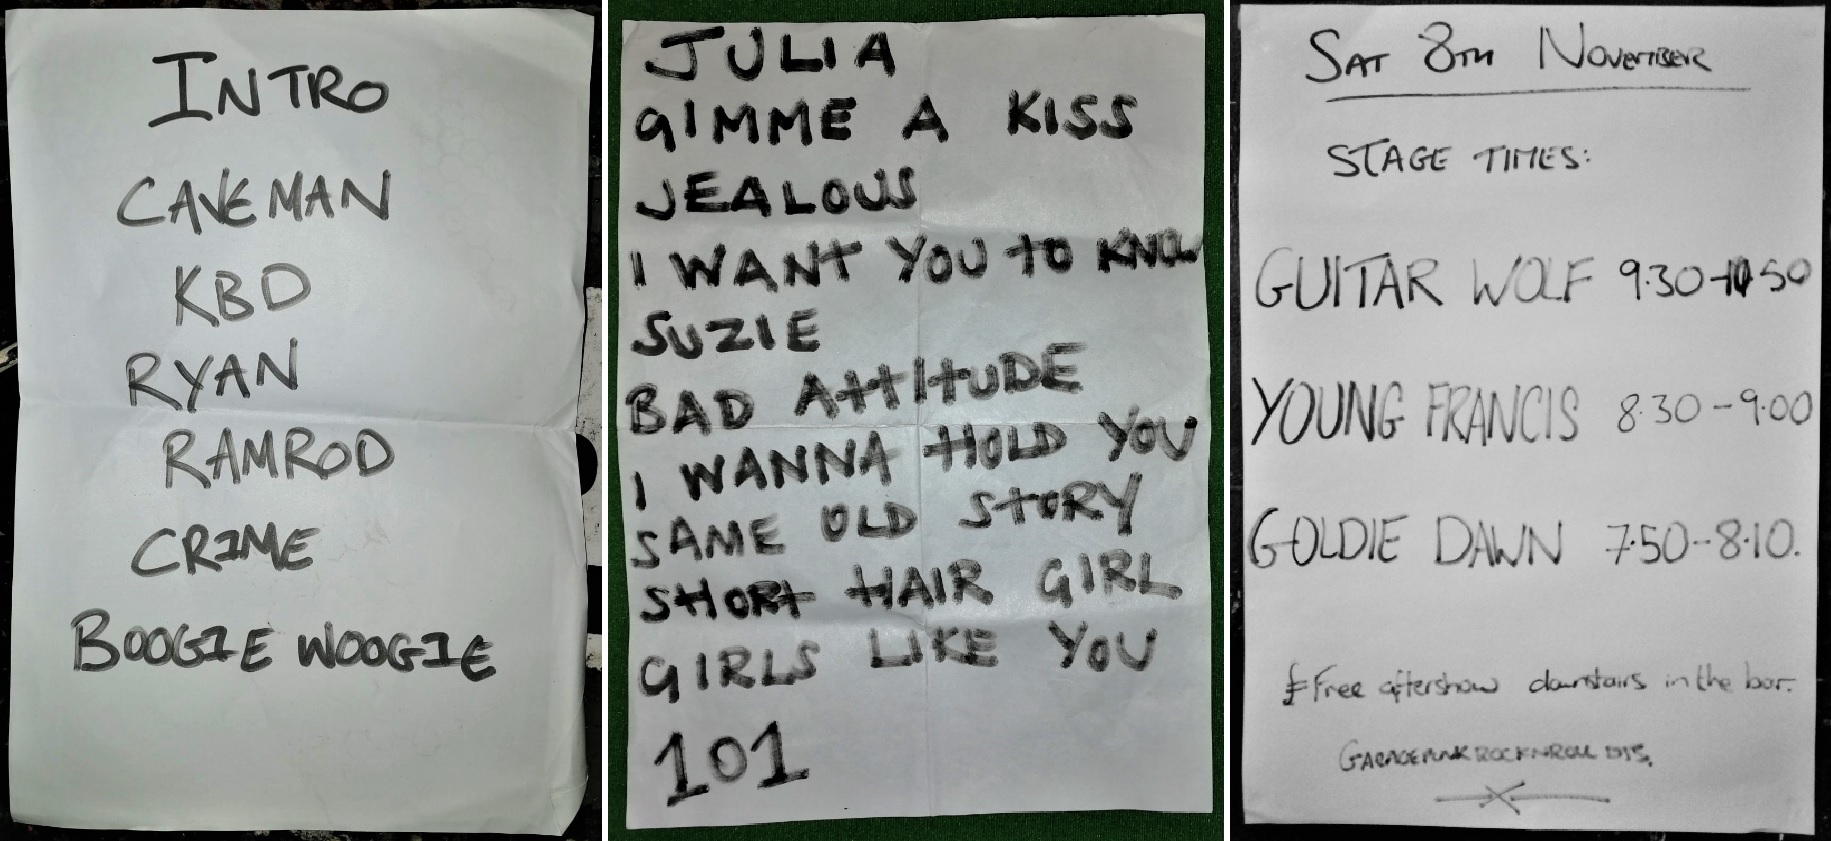 INTRO
CAVEMAN
KBD
RYAN
RAMROD
CRIME
BOOGIE WOOGIE
JULIA
GIMME A KISS
JEALOUS
I WANT YOU TO KNOW
SUZIE
BAD ATTITUDE
I WANNA HOLD YOU
SAME OLD STORY
SHORT HAIR GIRL
GIRLS LIKE YOU
101
SAT 8TH NOVEMBER
STAGE TIMES:
GUITAR WOLF 9.30-10.50
YOUNG FRANCIS 8.30-9.00
GOLDIE DAWN 7.50-8.10.
Free aftershow downstairs in the bar.
GARAGEPUNKROCKNROLL DJS.